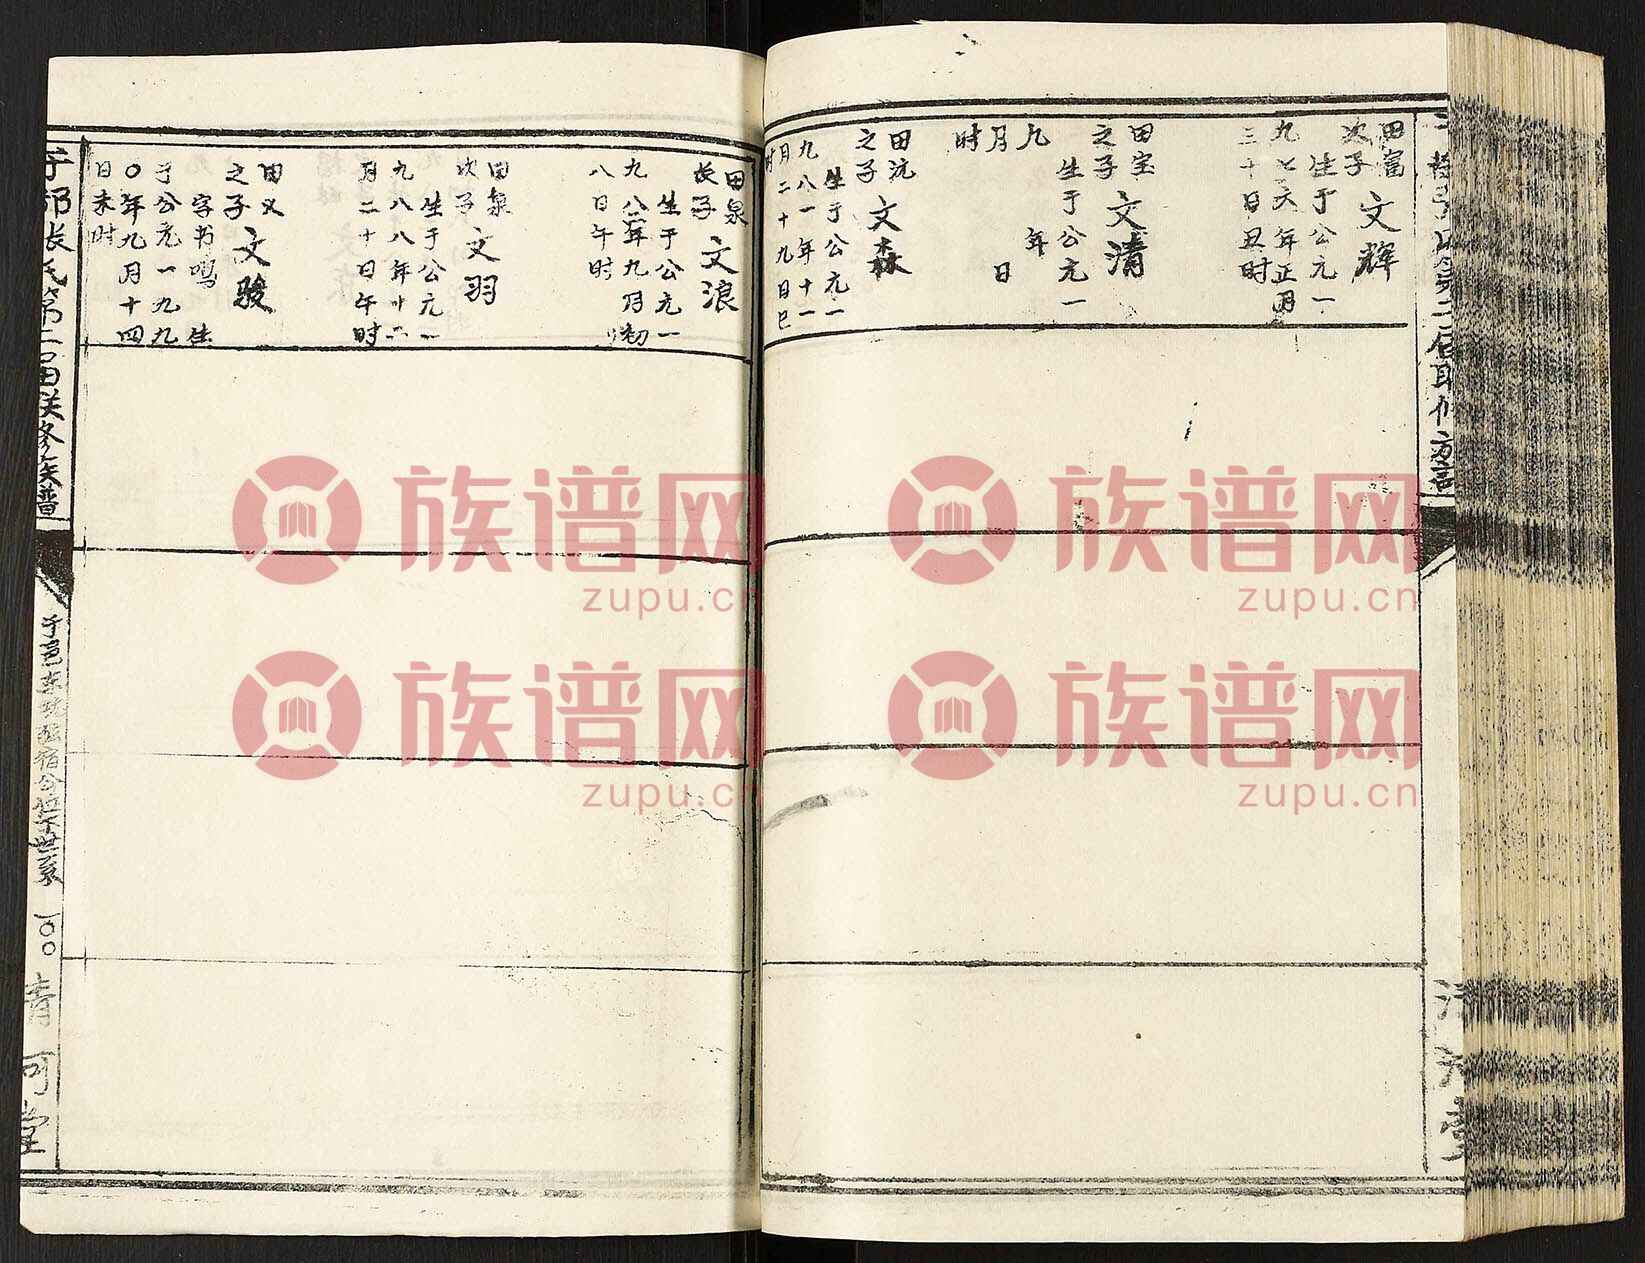 田富
次子
文辉
生于公元一
九七六年正月
三十日丑时
田宝
之子
文清
生于公元一
九 年
月 日
时
田沅
之子
文森
生于公元一
九八一年十一
月二十九日巳
时
田泉
长子
文浪
生于公元一
九八三年九月初
八日午时
田泉
次子
文羽
生于公元一
九八八年十二
月二十日午时
田义
之子
文骏
字书鸣 生
于公元一九九
〇年九月十四
日未时
于都张氏第二届联修族谱
公位下世系
一〇〇
清河堂
族谱网
zupu.cn
族谱网
zupu.cn
族谱网
zupu.cn
族谱网
zupu.cn